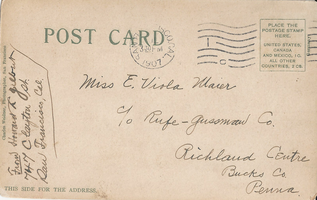 POST CARD
PLACE THE
POSTAGE STAMP
HERE.
UNITED STATES,
CANADA
AND MEXICO, 1C.
ALL OTHER
COUNTRIES, 2 CS.
1
Miss E. Viola Maier
c/o Rufe-Gussman Co.
Richland Centre
Bucks Co
Penna.
From Howard L
747 Clayton St
San Francisco, Cal
THIS SIDE FOR THE ADDRESS.